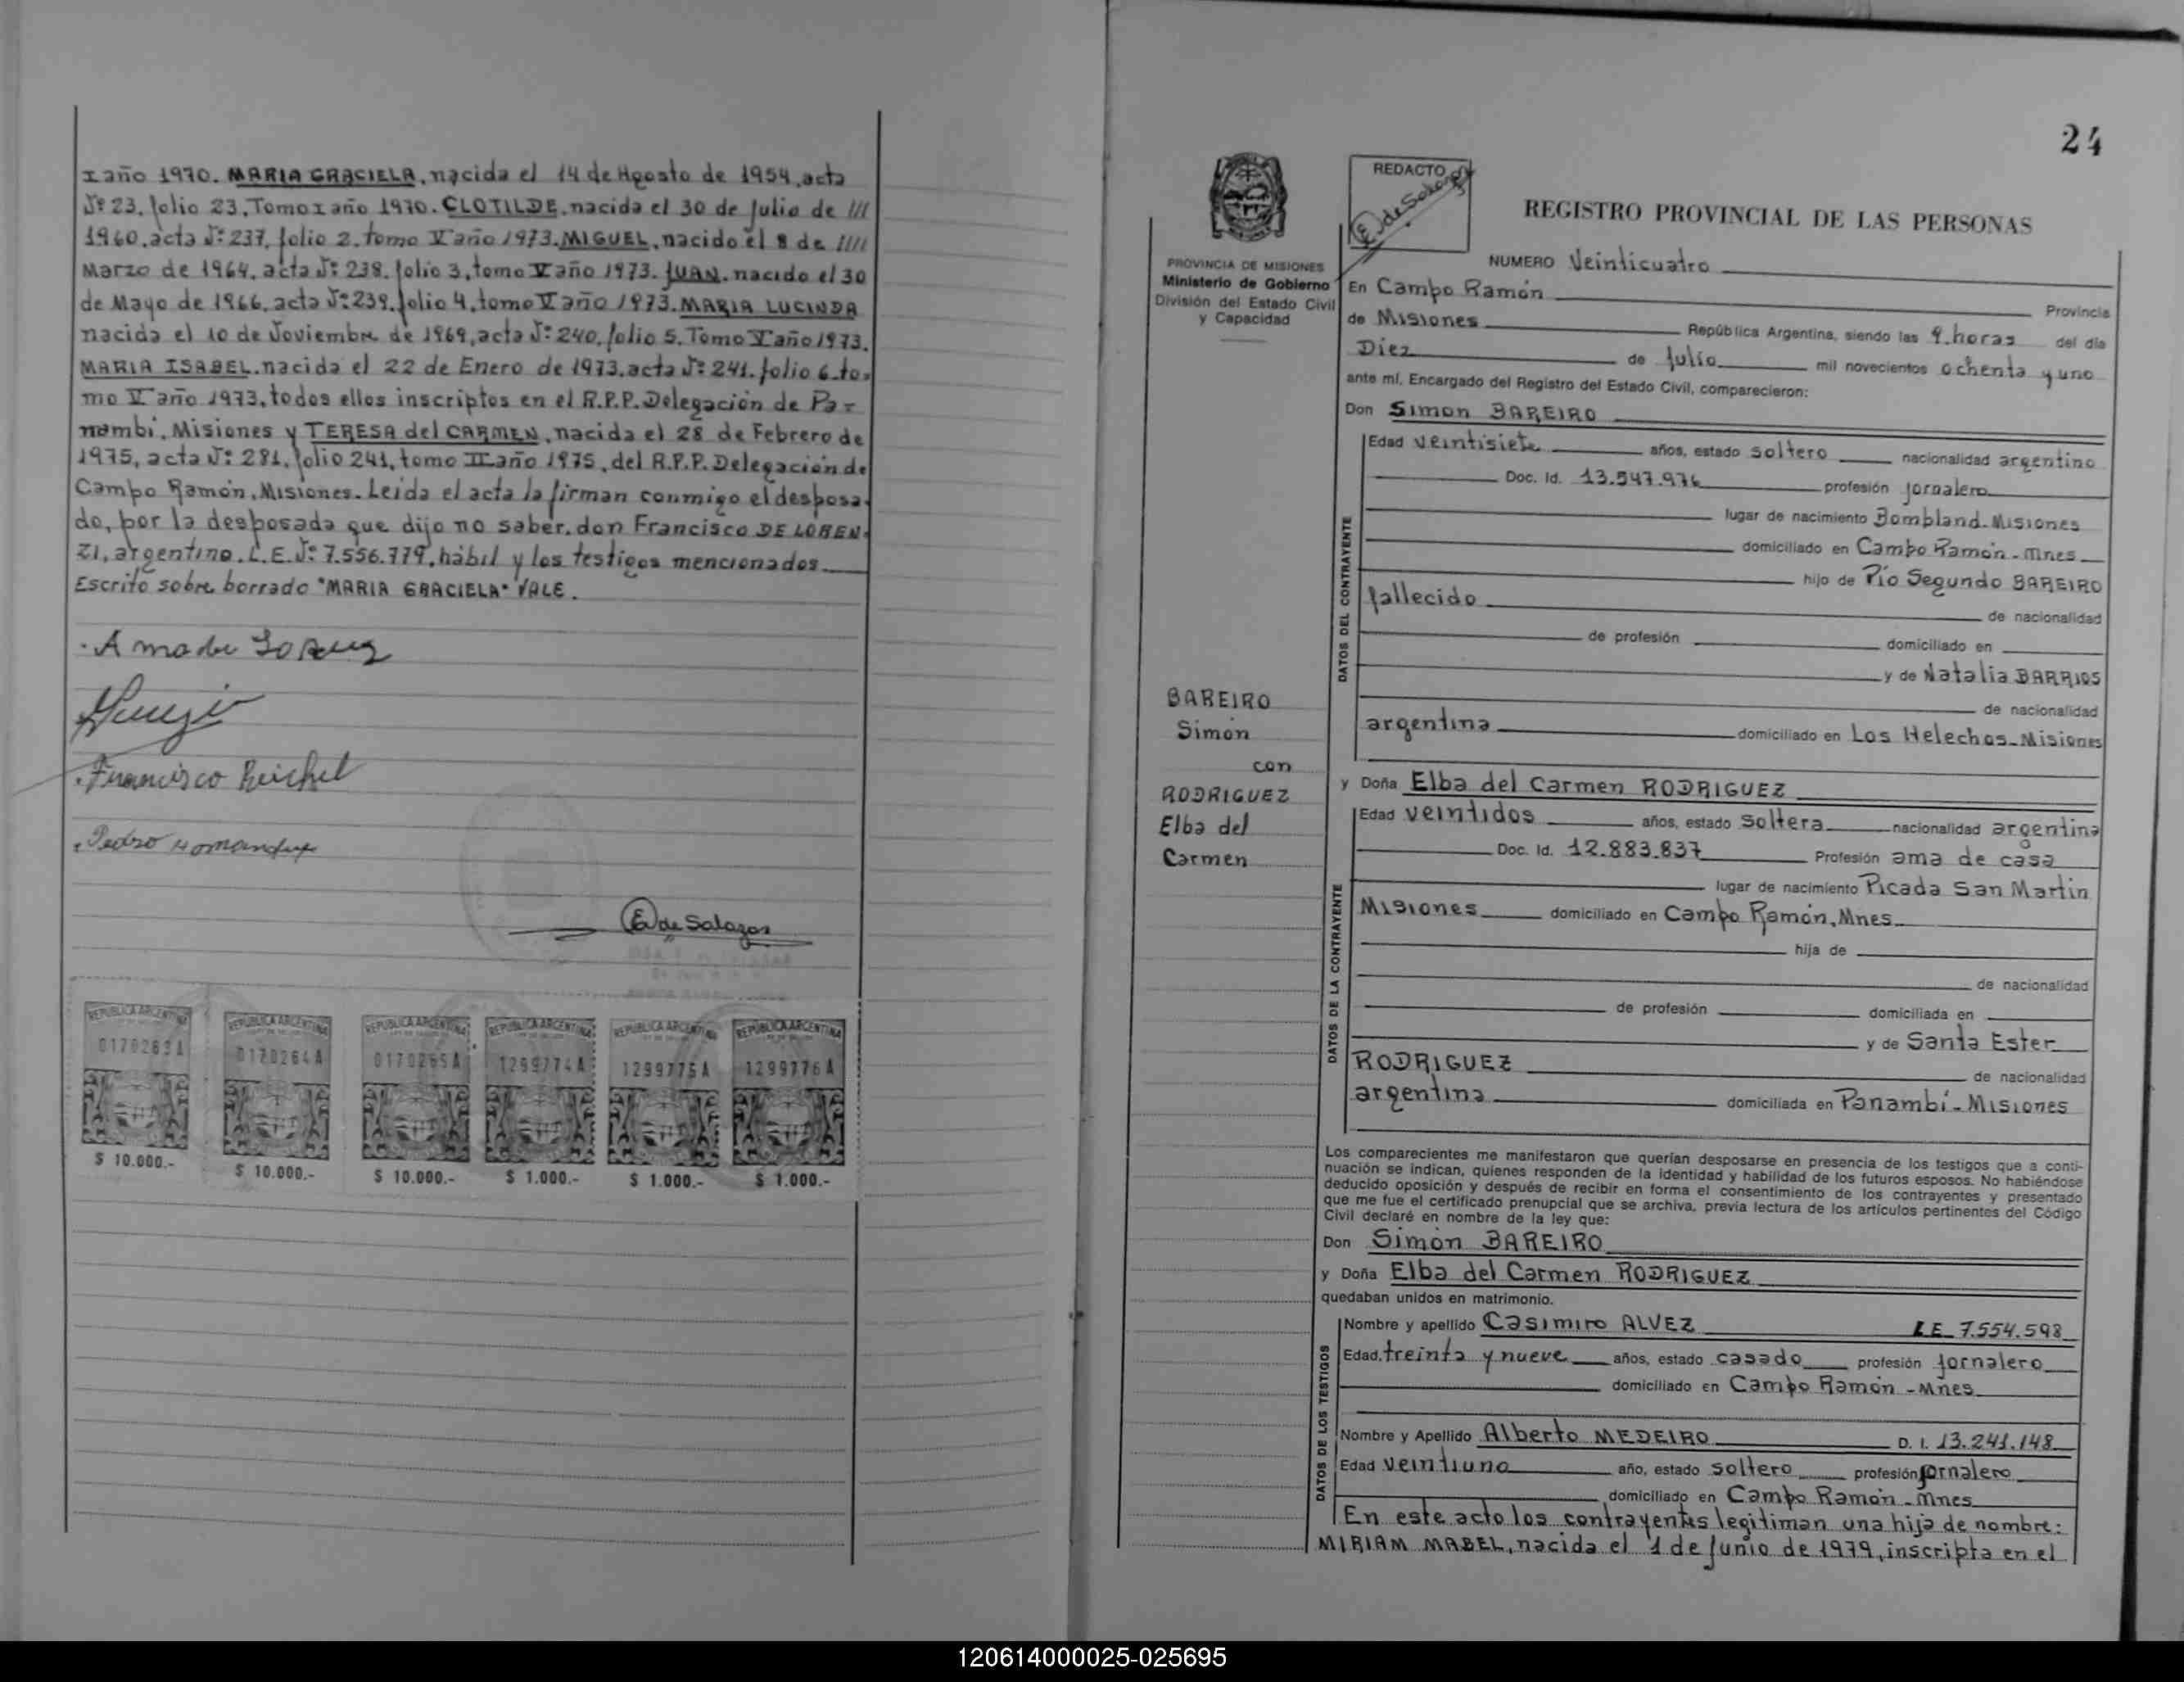 I año 1970. MARIA GRACIELA, nacida el 14 de Agosto de 1954, acta
Nº 23, folio 23, Tomo I año 1970. CLOTILDE, nacida el 30 de Julio de ///
1960, acta Nº 237, folio 2, tomo V año 1973. MIGUEL, nacido el 8 de ////
Marzo de 1964, acta Nº 238, folio 3, tomo V año 1973. JUAN, nacido el 30
de Mayo de 1966, acta Nº 239, folio 4, tomo V año 1973. MARIA LUCINDA
nacida el 10 de Noviembre de 1969, acta Nº 240, folio 5, Tomo V año 1973.
MARIA ISABEL, nacida el 22 de Enero de 1973, acta Nº 241, folio 6, to-
mo V año 1973, todos ellos inscriptos en el R.P.P. Delegación de Pa-
nambí, Misiones y TERESA del CARMEN, nacida el 28 de Febrero de
1975, acta Nº 281, folio 241, tomo II año 1975, del R.P.P. Delegación de
Campo Ramón, Misiones. Leida el acta la firman conmigo el desposa-
do, por la desposada que dijo no saber, don Francisco DE LOREN-
ZI, argentino, L.E. Nº 7.556.779, hábil y los testigos mencionados.
Escrito sobre borrado "MARIA GRACIELA" VALE.
Francisco Reichel
Pedro
E de Salazar
REPUBLICA ARGENTINA REPUBLICA ARGENTINA REPUBLICA ARGENTINA REPUBLICA ARGENTINA REPUBLICA ARGENTINA REPUBLICA ARGENTINA
0170263A 0170264A 0170265A 1299774A 1299775A 1299776A
$ 10.000.- $ 10.000.- $ 10.000.- $ 1.000.- $ 1.000.- $ 1.000.-
24
PROVINCIA DE MISIONES
Ministerio de Gobierno
División del Estado Civil
y Capacidad
BAREIRO
Simón
con
RODRIGUEZ
Elba del
Carmen
REDACTO
REGISTRO PROVINCIAL DE LAS PERSONAS
NUMERO Veinticuatro
En Campo Ramón Provincia
de Misiones República Argentina, siendo las 9 horas del día
Diez de Julio mil novecientos ochenta y uno
ante mí, Encargado del Registro del Estado Civil, comparecieron:
Don Simon BAREIRO
DATOS DEL CONTRAYENTE
Edad veintisiete años, estado soltero nacionalidad argentino
Doc. Id. 13.547.976 profesión jornalero
lugar de nacimiento Bompland-Misiones
domiciliado en Campo Ramón-Mnes
hijo de Pío Segundo BAREIRO
fallecido de nacionalidad
de profesión domiciliado en
y de Natalia BARRIOS
de nacionalidad
argentina domiciliado en Los Helechos-Misiones
y Doña Elba del Carmen RODRIGUEZ
DATOS DE LA CONTRAYENTE
Edad veintidos años, estado soltera nacionalidad argentina
Doc. Id. 12.883.837 Profesión ama de casa
lugar de nacimiento Picada San Martin
Misiones domiciliado en Campo Ramón, Mnes.
hija de
de nacionalidad
de profesión domiciliada en
y de Santa Ester
RODRIGUEZ de nacionalidad
argentina domiciliada en Panambí-Misiones
Los comparecientes me manifestaron que querían desposarse en presencia de los testigos que a conti-
nuación se indican, quienes responden de la identidad y habilidad de los futuros esposos. No habiéndose
deducido oposición y después de recibir en forma el consentimiento de los contrayentes y presentado
que me fue el certificado prenupcial que se archiva, previa lectura de los artículos pertinentes del Código
Civil declaré en nombre de la ley que:
Don Simón BAREIRO
y Doña Elba del Carmen RODRIGUEZ
quedaban unidos en matrimonio.
DATOS DE LOS TESTIGOS
Nombre y apellido Casimiro ALVEZ L.E. 7.554.598
Edad treinta y nueve años, estado casado profesión jornalero
domiciliado en Campo Ramón-Mnes
Nombre y Apellido Alberto MEDEIRO D. I. 13.241.148
Edad veintiuno año, estado soltero profesión jornalero
domiciliado en Campo Ramón-Mnes
En este acto los contrayentes legitiman una hija de nombre:
MIRIAM MABEL, nacida el 1 de Junio de 1979, inscripta en el
120614000025-025695